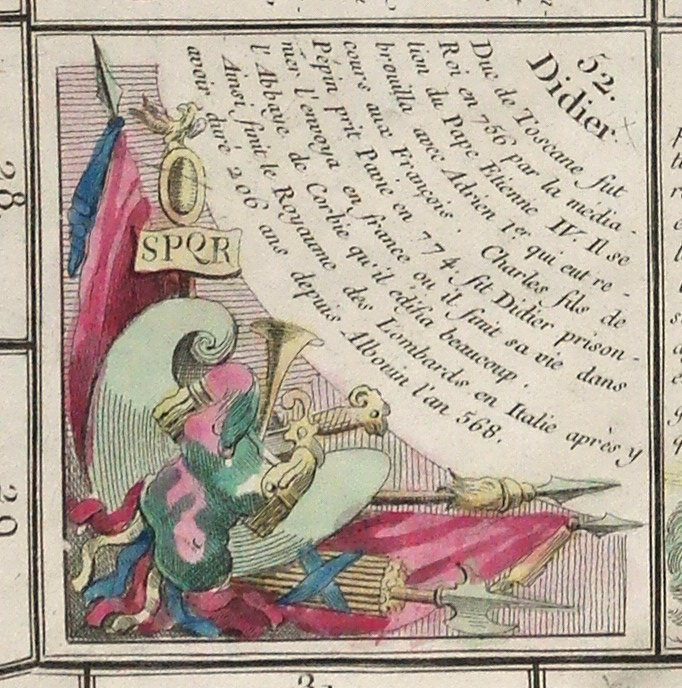 52.
Didier
Duc de Toscane fut
Roi en 756 par la média-
tion du Pape Etienne IV. Il se
brouilla avec Adrien 1er qui eut re-
cours aux François. Charles fils de
Pépin prit Pavie en 774. fit Didier prison-
nier l'envoya en france ou il finit sa vie dans
l'Abbaye de Corbie qu'il édifia beaucoup.
Ainsi finit le Royaume des Lombards en Italie après y
avoir duré 206 ans depuis Albouin l'an 568.
SPQR
28
29